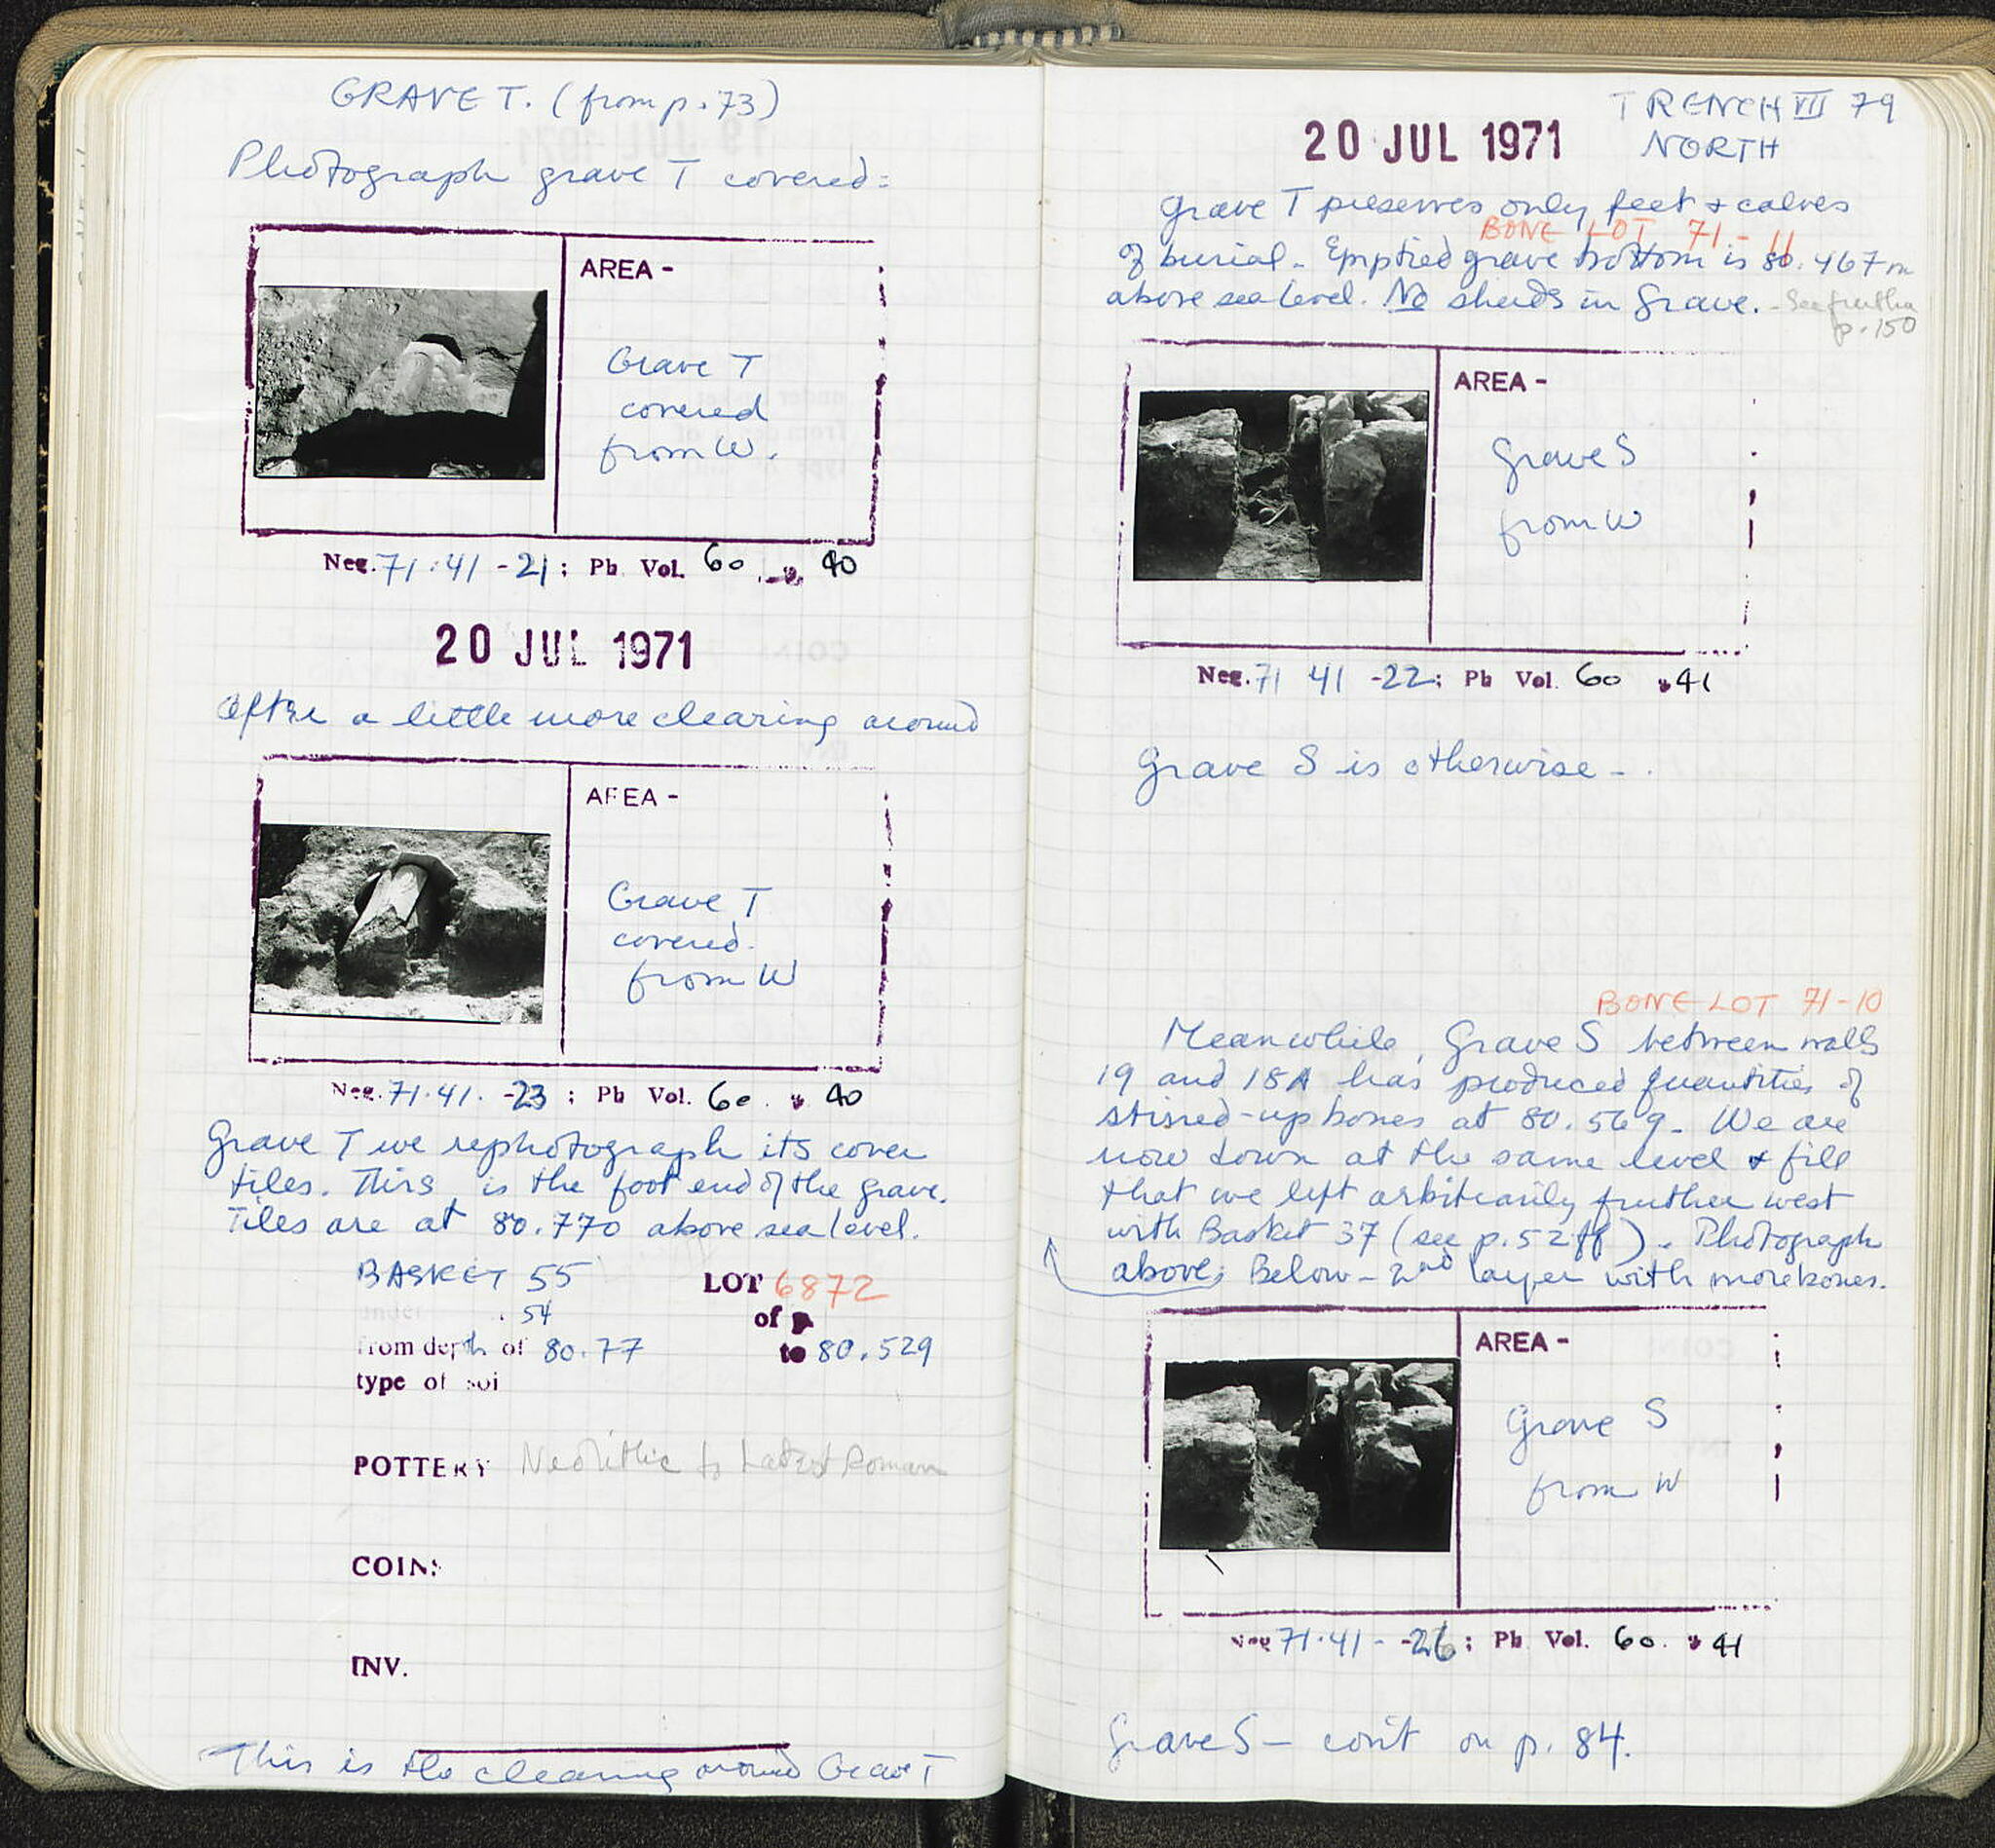 GRAVE T. (from p. 73)
Photograph grave T covered:
AREA -
Grave T
covered
from W.
Neg. 71.41 -21; Ph Vol. 60 40
20 JUL 1971
After a little more clearing around
AREA -
Grave T
covered.
from W
Neg. 71.41. -23; Ph Vol. 60. 40
Grave T we rephotograph its cover
tiles. This is the foot end of the grave.
Tiles are at 80.770 above sea level.
BASKET 55 LOT 6872
under 54 of
from depth of 80.77 to 80.529
type of soi
POTTERY Neolithic to Latest Roman
COINS
INV.
This is the clearing around Grave T
TRENCH VII 79
20 JUL 1971 NORTH
Grave T preserves only feet + calves
BONE LOT 71-11
of burial - Emptied grave bottom is 80.467m
above sea level. No sherds in Grave. - See further
p. 150
AREA -
Grave S
from W
Neg. 71 41 -22; Ph Vol. 60 41
Grave S is otherwise -
BONE LOT 71-10
Meanwhile, Grave S between walls
19 and 18A has produced quantities of
stirred-up bones at 80.569. We are
now down at the same level & fill
that we left arbitrarily further west
with Basket 37 (see p. 52ff). Photograph
above; Below - 2nd layer with more bones.
AREA -
Grave S
from W
Neg 71.41 - -26; Ph Vol. 60. 41
Grave S - con't on p. 84.